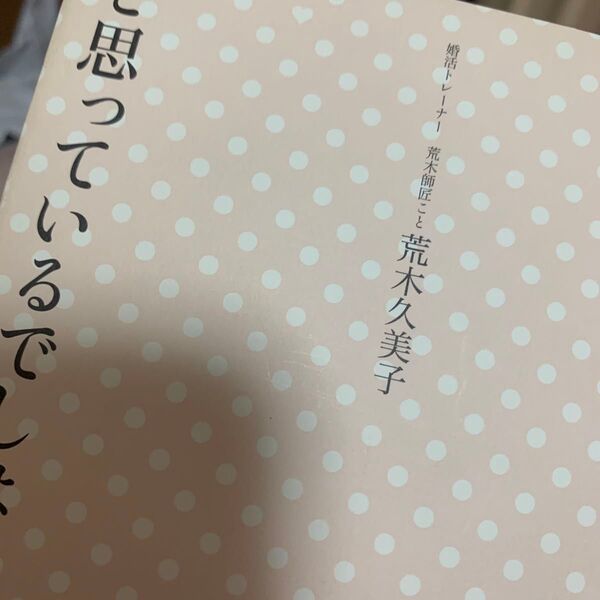 婚活トレーナー 荒木師匠こと 荒木久美子
と思っているでしょ